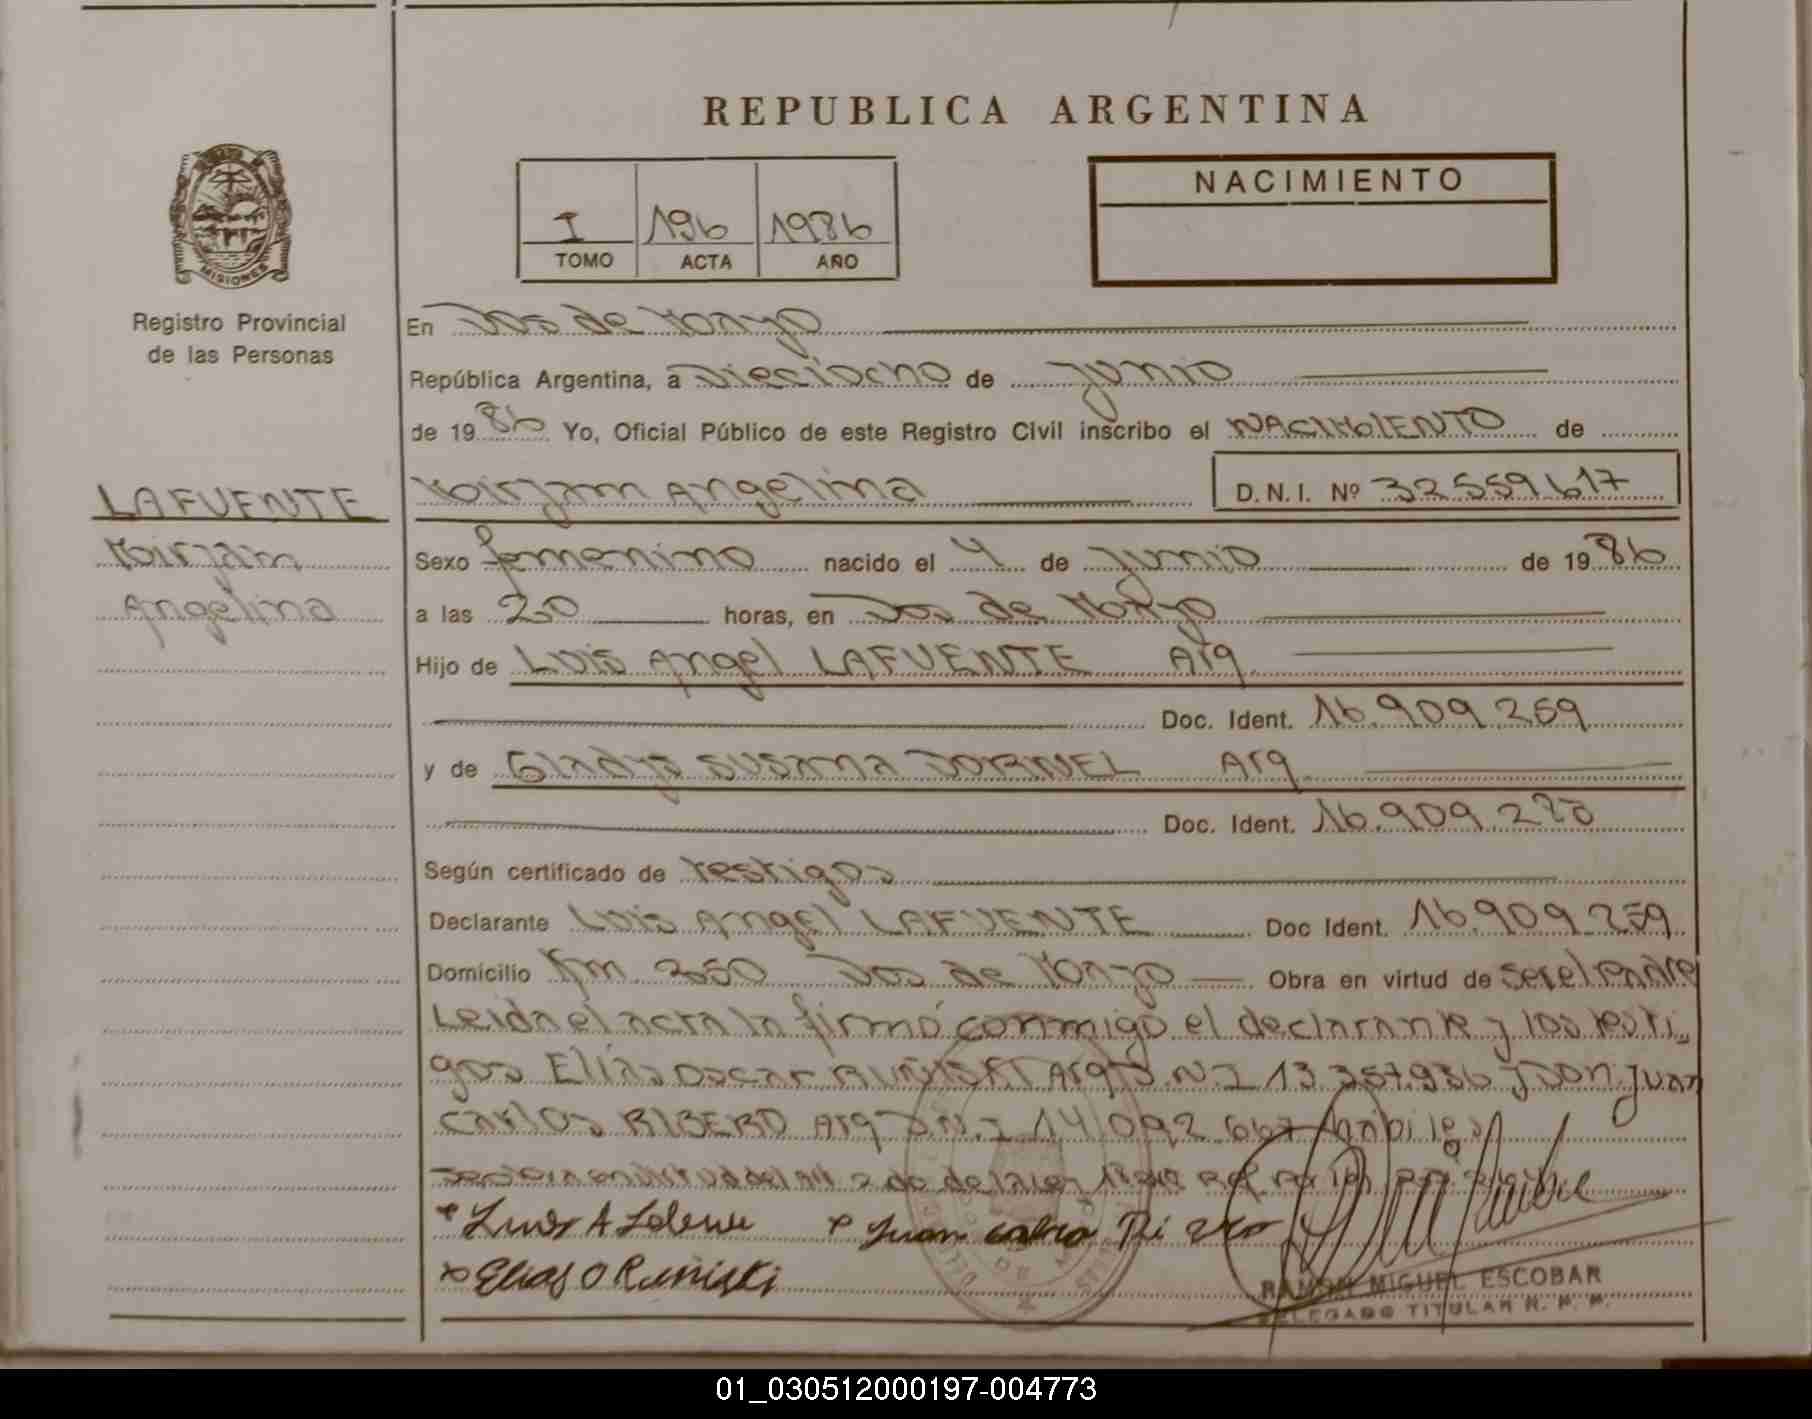 REPUBLICA ARGENTINA
NACIMIENTO
I 196 1986
TOMO ACTA AÑO
MISIONES
Registro Provincial
de las Personas
En Dos de Mayo
República Argentina, a Dieciocho de Junio
de 1986 Yo, Oficial Público de este Registro Civil inscribo el NACIMIENTO de
LAFUENTE
Mirjam Angelina D.N.I. Nº 32559617
Mirjam
Angelina
Sexo femenino nacido el 4 de Junio de 1986
a las 20 horas, en Dos de Mayo
Hijo de LUIS Angel LAFUENTE Arg
Doc. Ident. 16.909.259
y de Gladys SUSANA DORNEL Arg
Doc. Ident. 16.909.220
Según certificado de testigos
Declarante LUIS Angel LAFUENTE Doc Ident. 16.909.259
Domicilio Km 250 Dos de Mayo Obra en virtud de ser el Padre
Leida el acta la firmó conmigo el declarante y los testi
gos Elias Oscar Arg D.N.I 13.357.936 y Don Juan
Carlos RIBERO Arg D.N.I 14.092.667 habiles
Luis A
Juan
Elias O
RAMON MIGUEL ESCOBAR
DELEGADO TITULAR R. P. P.
01_030512000197-004773